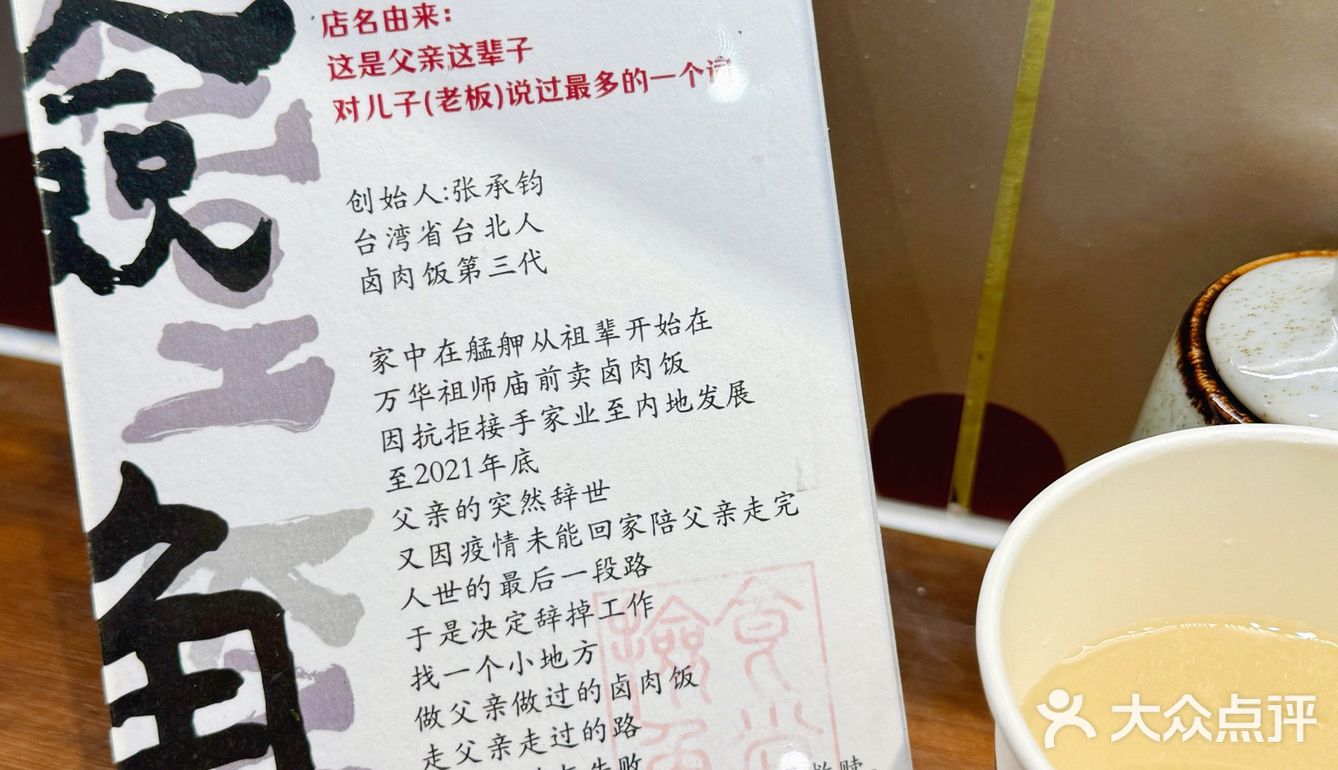 店名由来:
这是父亲这辈子
对儿子(老板)说过最多的一个词
创始人:张承钧
台湾省台北人
卤肉饭第三代
家中在艋舺从祖辈开始在
万华祖师庙前卖卤肉饭
因抗拒接手家业至内地发展
至2021年底
父亲的突然辞世
又因疫情未能回家陪父亲走完
人世的最后一段路
于是决定辞掉工作
找一个小地方
做父亲做过的卤肉饭
走父亲走过的路
失败
救赎。
角
食堂
撿角
大众点评